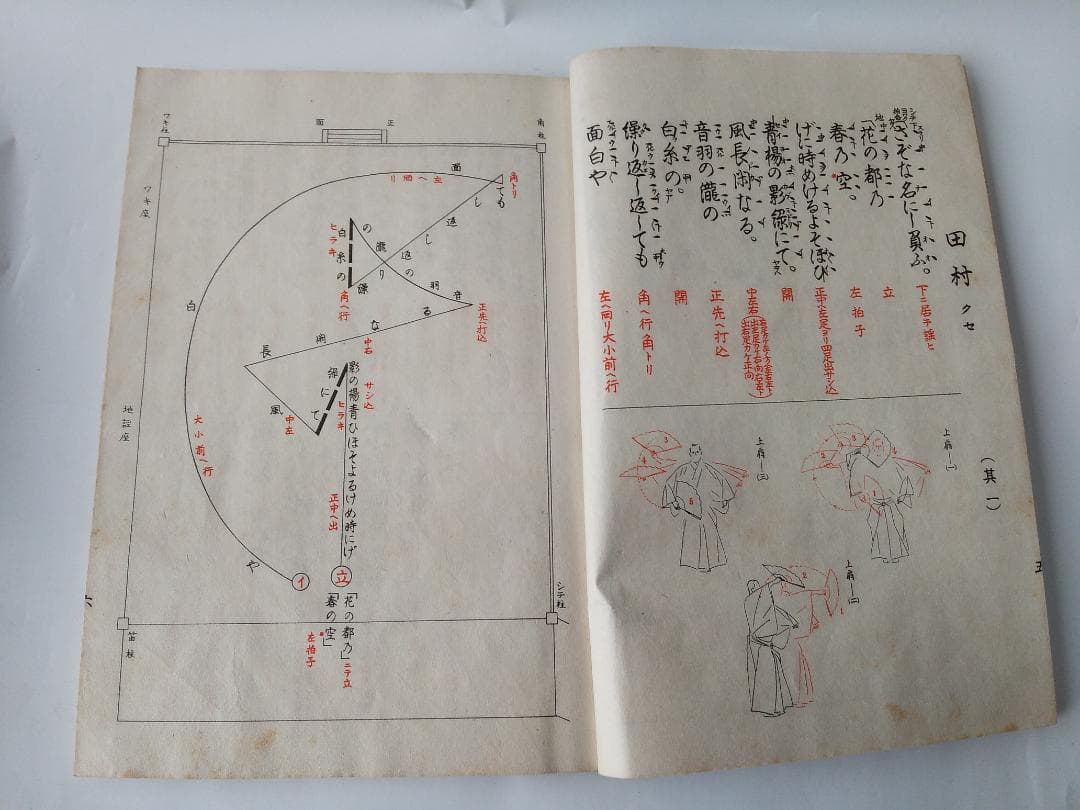 田村 クセ
(其一)
五
さぞな名にし負ふ。
「花の都乃
春乃空。
げに時めけるよそほひ
青楊の影緑にて。
風長閑なる。
音羽の瀧の
白糸の。
繰り返し返しても
面白や
下ニ居テ謡ヒ
立
左拍子
正中ヘ左足ヨリ四足出サシ込
開
中左右
正先ヘ打込
開
角ヘ行角トリ
左ヘ回リ大小前ヘ行
上扇―(一)
上扇―(二)
上扇―(三)
1
2
3
4
5
角柱
正
面
ワキ柱
ワキ座
地謡座
笛柱
シテ柱
六
立
「花の都乃」ニテ立
「春の空」
左拍子
げに時めけるよそほひ青楊の影
正中ヘ出
サシ込
緑にて
ヒラキ
風
中左
長閑なる
中右
音羽の瀧の
正先ヘ打込
白糸の
ヒラキ
繰り返し返し
角ヘ行
ても
角トリ
面白や
左ヘ回リ
大小前ヘ行
イ